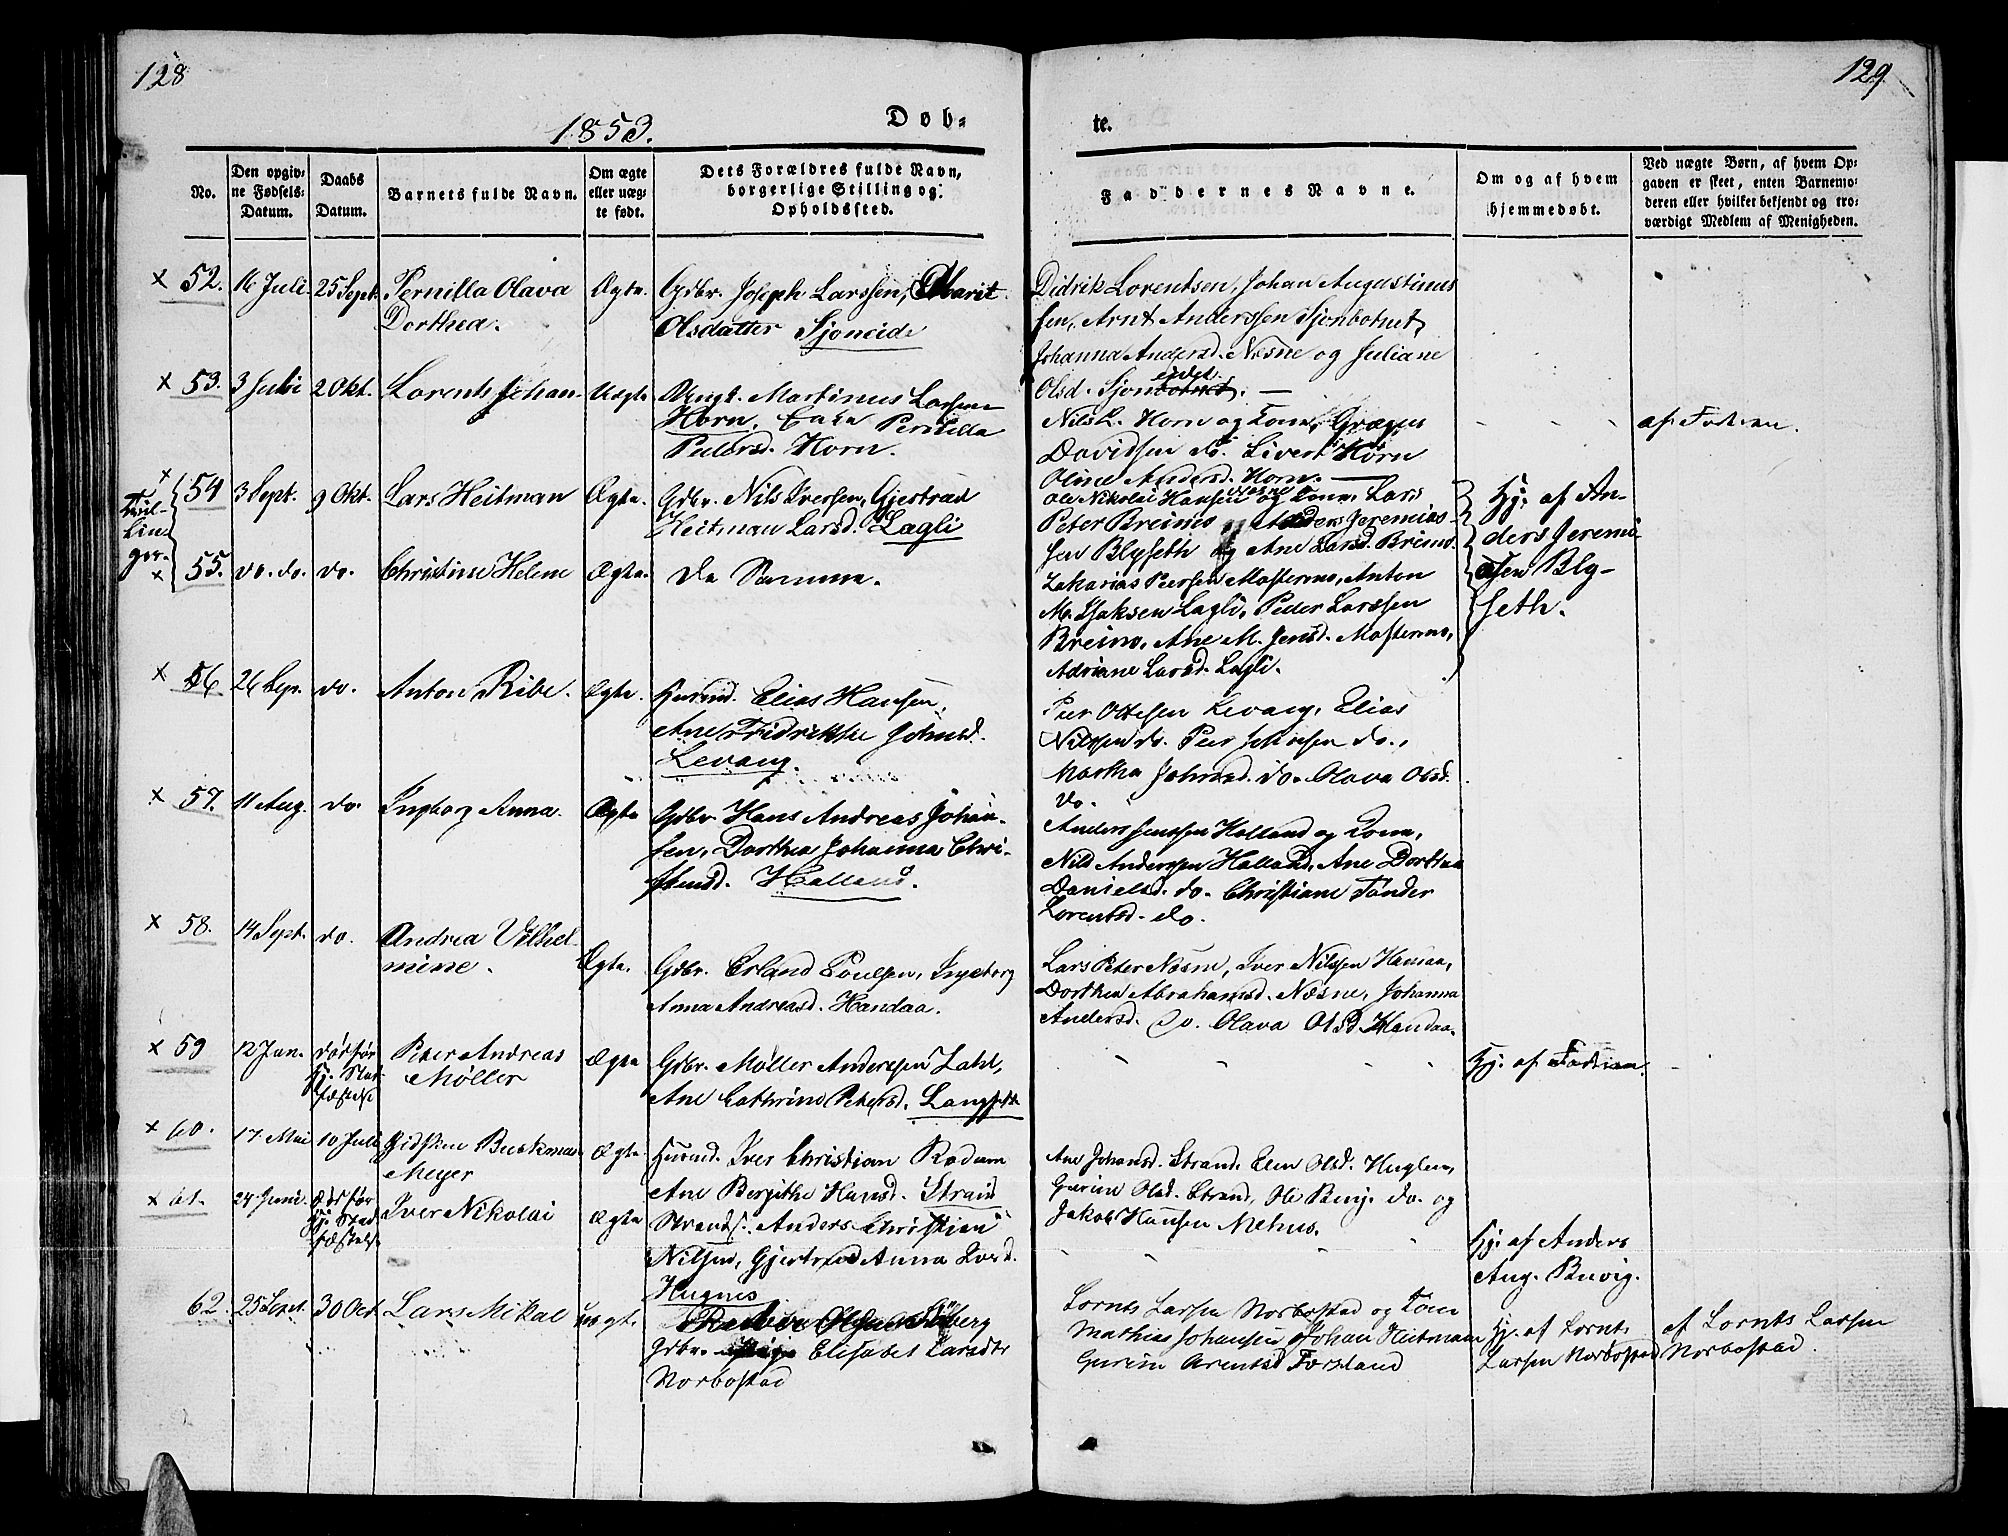 128
129
1853.
Døb-
te.
No.
Den opgiv-
ne Fødsels-
Datum.
Daabs
Datum.
Barnets fulde Navn.
Om ægte
eller uæg-
te født.
Dets Forældres fulde Navn,
borgerlige Stilling og
Opholdssted.
Faddernes Navne.
Om og af hvem
hjemmedøbt.
Ved uægte Børn, af hvem Op-
gaven er skeet, enten Barnemo-
deren eller hvilket bekjendt og tro-
værdigt Medlem af Menigheden.
× 52. 16 Juli. 25 Sept. Pernilla Olava
Dorthea.
Ægte. Gdbr. Joseph Larssen, Marit
Olsdatter Sjoneide
Didrik Lorentsen, Johan Augustinus
sen, Arnt Anderssen Sjonbotnet,
Johanna Andersd. Næsne og Juliane
Olsd. Sjonbotnet. —
eidet.
× 53. 3 Juli 2 Okt. Lorents Johan Uægte Ungk. Martinus Larssen
Horn, Enke Pernilla
Pedersd. Horn.
Nils L. Horn og Kone, Græger
Davidsen do. Sivert Horn
Oline Andersd. Horn. —
af Faderen.
× 54 3 Sept. 9 Okt. Lars Heitman Ægte. Gdbr. Nils Iversen, Gjertrud
Heitman Larsd. Lagli
Tvil-
lin-
ger.
Ole Nikolai Hansen Næsne og Kone, Lars
Peter Breimo Anders Jeremias-
sen Blyseth og Ane Larsd. Breimo.
Hj. af An-
ders Jeremi-
asen Bly-
seth.
× 55. do. do. do. Christine Helene Ægte. De Samme.
Zakarias Peersen Mostermo, Anton
M. Isaksen Lagli, Peder Larssen
Breimo, Ane M. Jensd. Mostermo,
Adriane Larsd. Lagli.
× 56 26 Sep. do. Anton Ribe. Ægte. Huusmd. Elias Hansen,
Ane Fridrikke Johnsd.
Levang.
Peer Ottesen Levang, Elias
Nilssen do. Peer Johnsen do.,
Martha Johnsd. do. Olava Olsd.
do.
× 57. 11 Aug. do. Ingborg Anna. Ægte Gdbr. Hans Andreas Johan-
sen, Dorthea Johanna Chri-
stensd. Halland.
Anders Jenssen Halland og Kone,
Nils Anderssen Halland, Ane Dorthea
Danielsd. do. Christiane Tønder
Lorentsd. do.
× 58. 14 Sept. do. Andrea Vilhel-
mine.
Ægte. Gdbr. Erland Poulsen, Ingeborg
Anna Andreasd. Handaa.
Lars Peter Næsne, Iver Nilssen Hanaa,
Dorthea Abrahamsd. Næsne, Johanna
Andersd. do. Olava Olsd. Handaa.
× 59 12 Jan. død før
Hj. Stad-
fæstelse
Peter Andreas
Møller
Ægte Gdbr. Møller Anderssen Zahl,
Ane Cathrine Petersd. Langseth
Hj. af Faderen.
× 60. 17. Mai 10 Juli Zidsken Buskman
Meyer
Ægte. Huusmd. Iver Christian Rodum
Ane Bergithe Hansd. Strand
Ane Johansd. Strand. Elen Olsd. Huglen,
Gurine Olsd. Strand, Ole Benj. do. og
Jakob Hansen Nehus.
× 61. 24 Juni. død før
Hj. Stad
fæstelse
Iver Nikolai Ægte Strands. Anders Christian
Nilsen, Gjertrud Anna Iversd.
Hugnes
Hj. af Anders
Aug. Buvig.
62. 25 Sept. 30 Oct. Lars Mikal uægte.
Gdbr. Elisabet Larsdtr
Norbostad
Lornts Larsen Norbostad og Kone
Mathias Johansen Johan Heitmann
Gurine Arentsd Forsland
Hj. af Lornts
Larsen Norbostad
af Lornts Larsen
Norbostad.